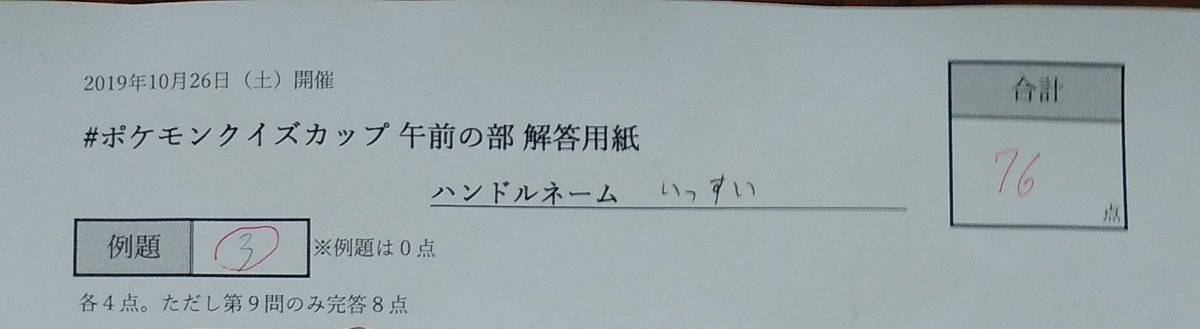 2019年10月26日（土）開催
#ポケモンクイズカップ 午前の部 解答用紙
合計
76
点
ハンドルネーム いっすい
例題 3 ※例題は0点
各4点。ただし第9問のみ完答8点